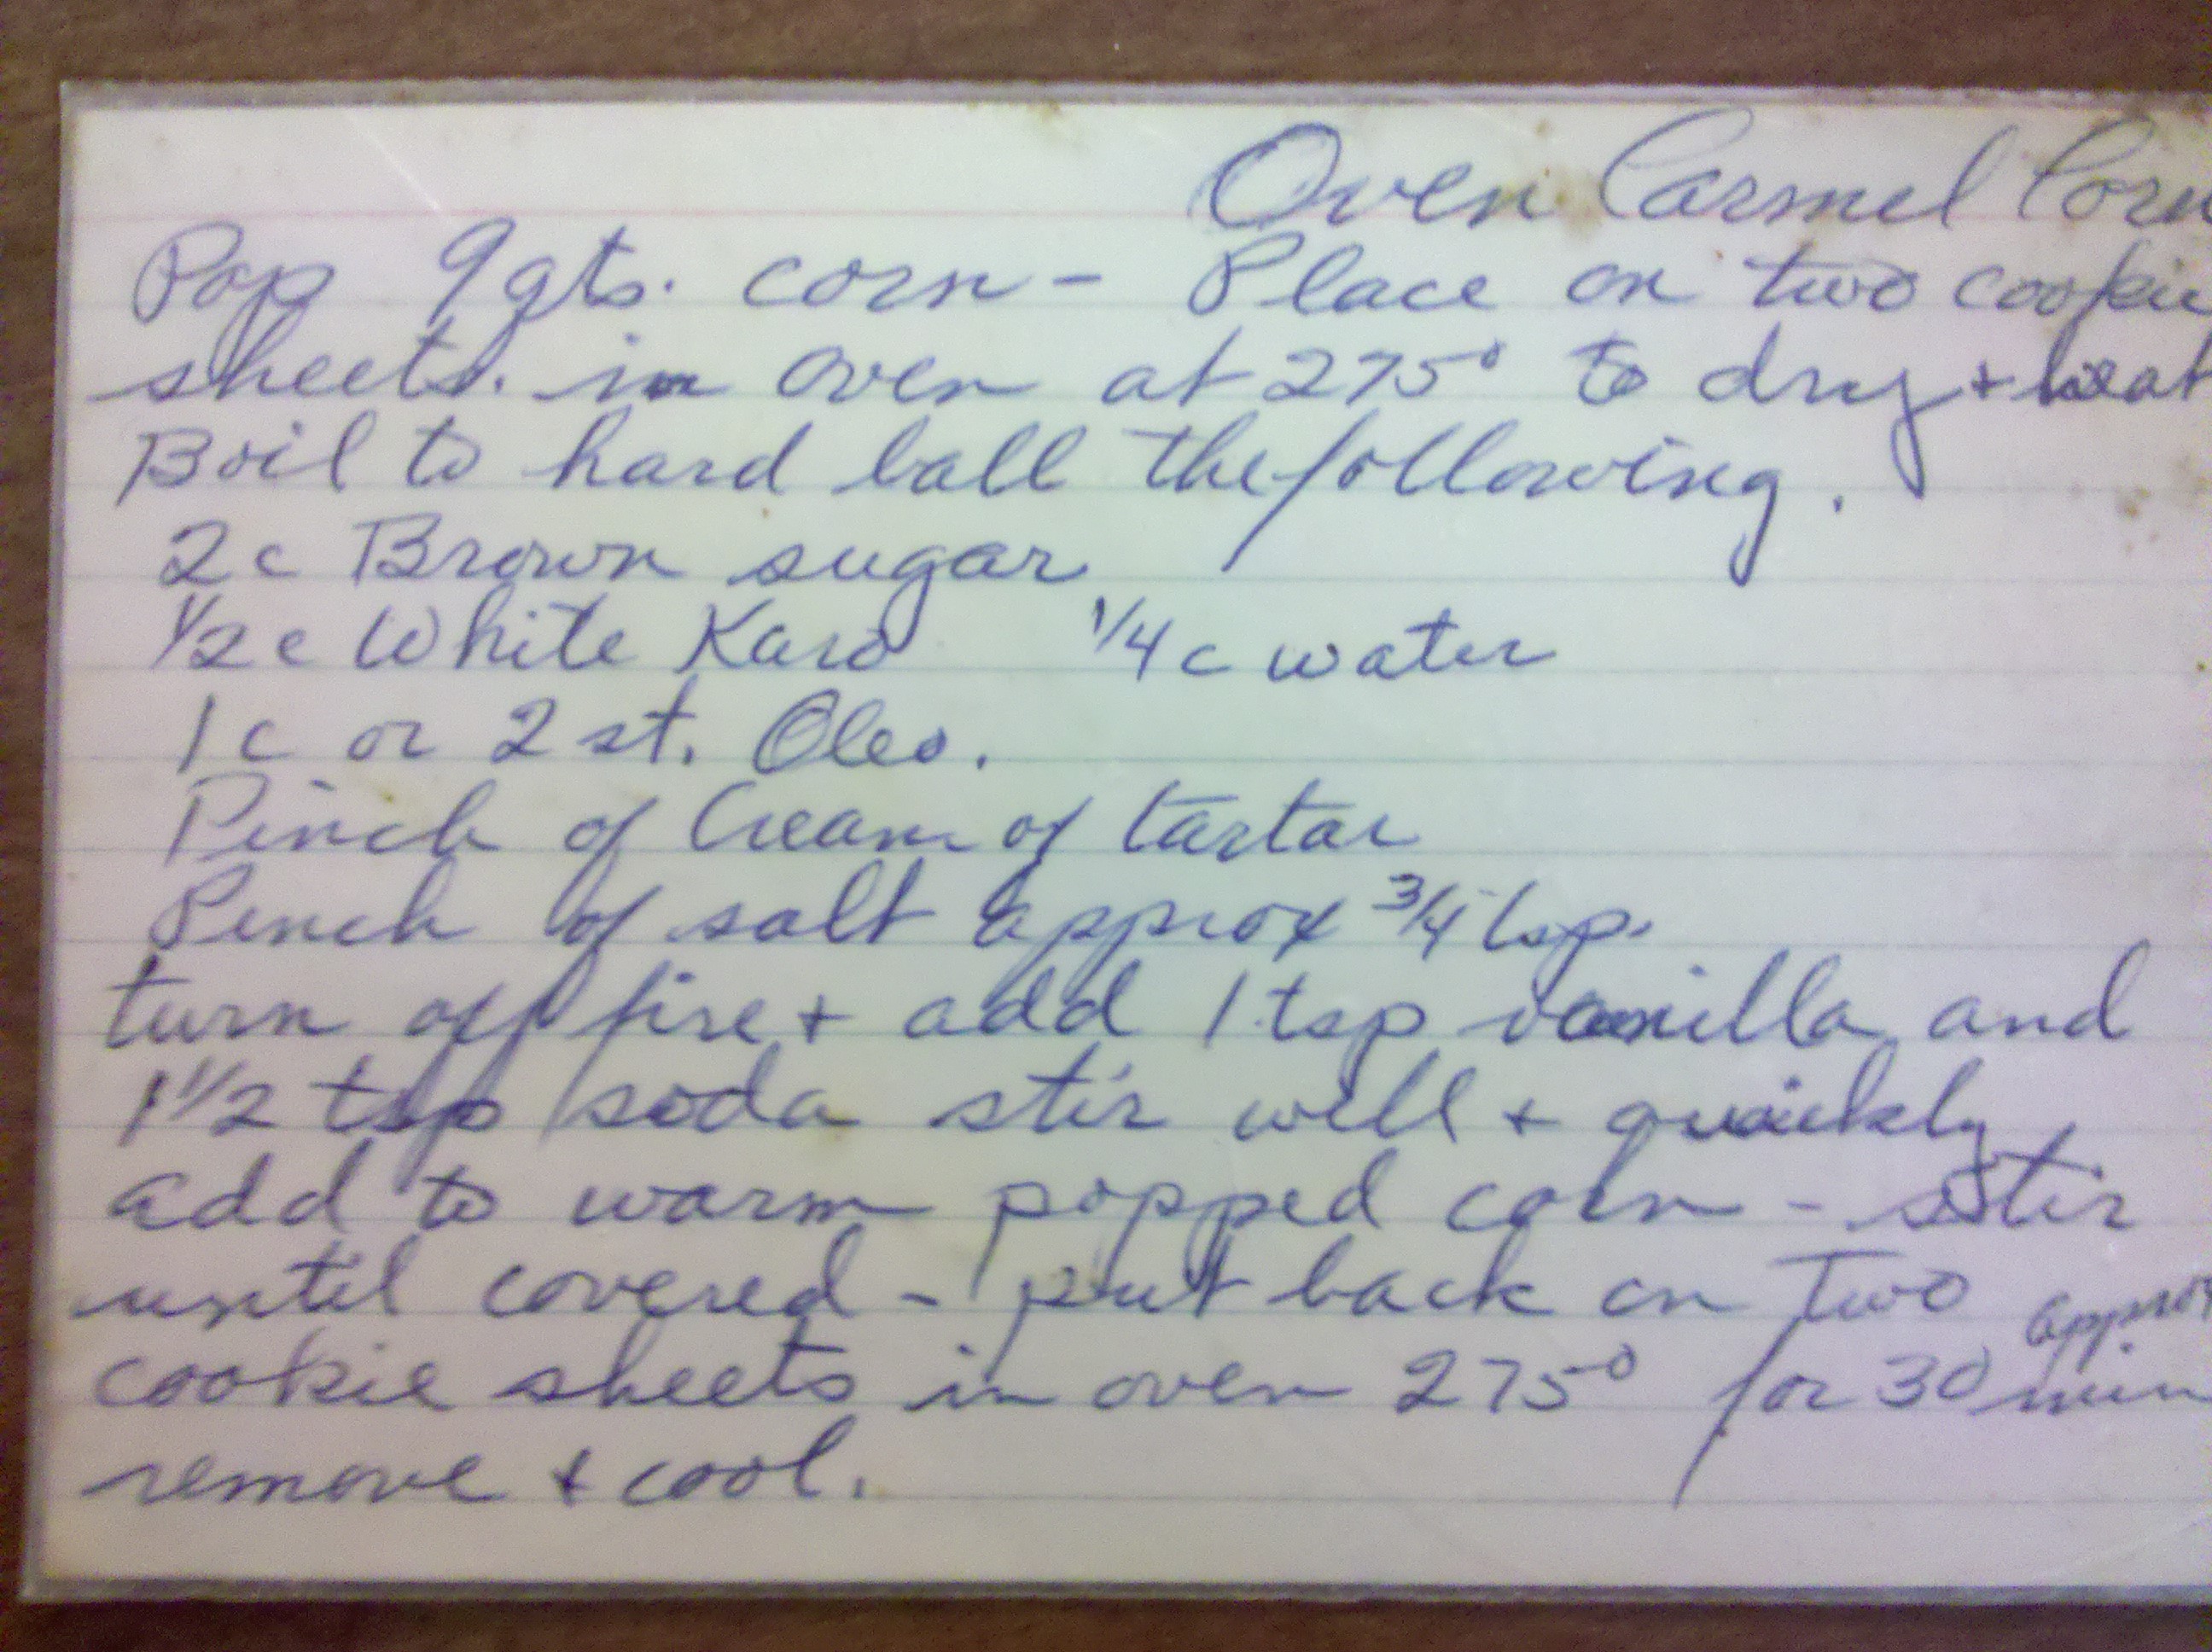 Oven Carmel Corn
Pop 9 qts. corn - Place on two cookie
sheets. in oven at 275° to dry + heat
Boil to hard ball the following.
2 c Brown sugar
1/2 c White Karo 1/4 c water
1 c or 2 st. Oleo.
Pinch of Cream of tartar
Pinch of salt approx 3/4 tsp.
turn off fire + add 1 tsp vanilla and
1 1/2 tsp soda stir well + quickly
add to warm popped corn - stir
until covered - put back on Two
cookie sheets in oven 275° for 30 approx min
remove + cool.